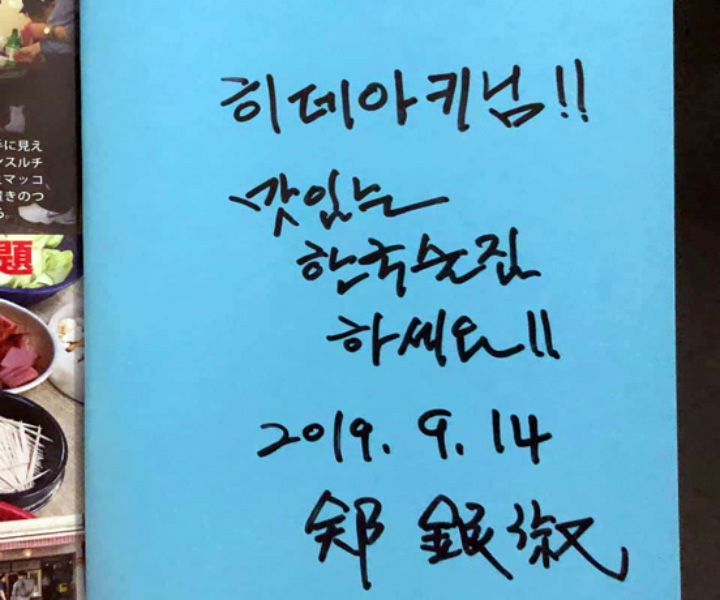 に見え
スルチ
マッコ
きのつ
題
히데아키님!!
맛있는
한국술집
하세요!!
2019. 9. 14
鄭 銀淑